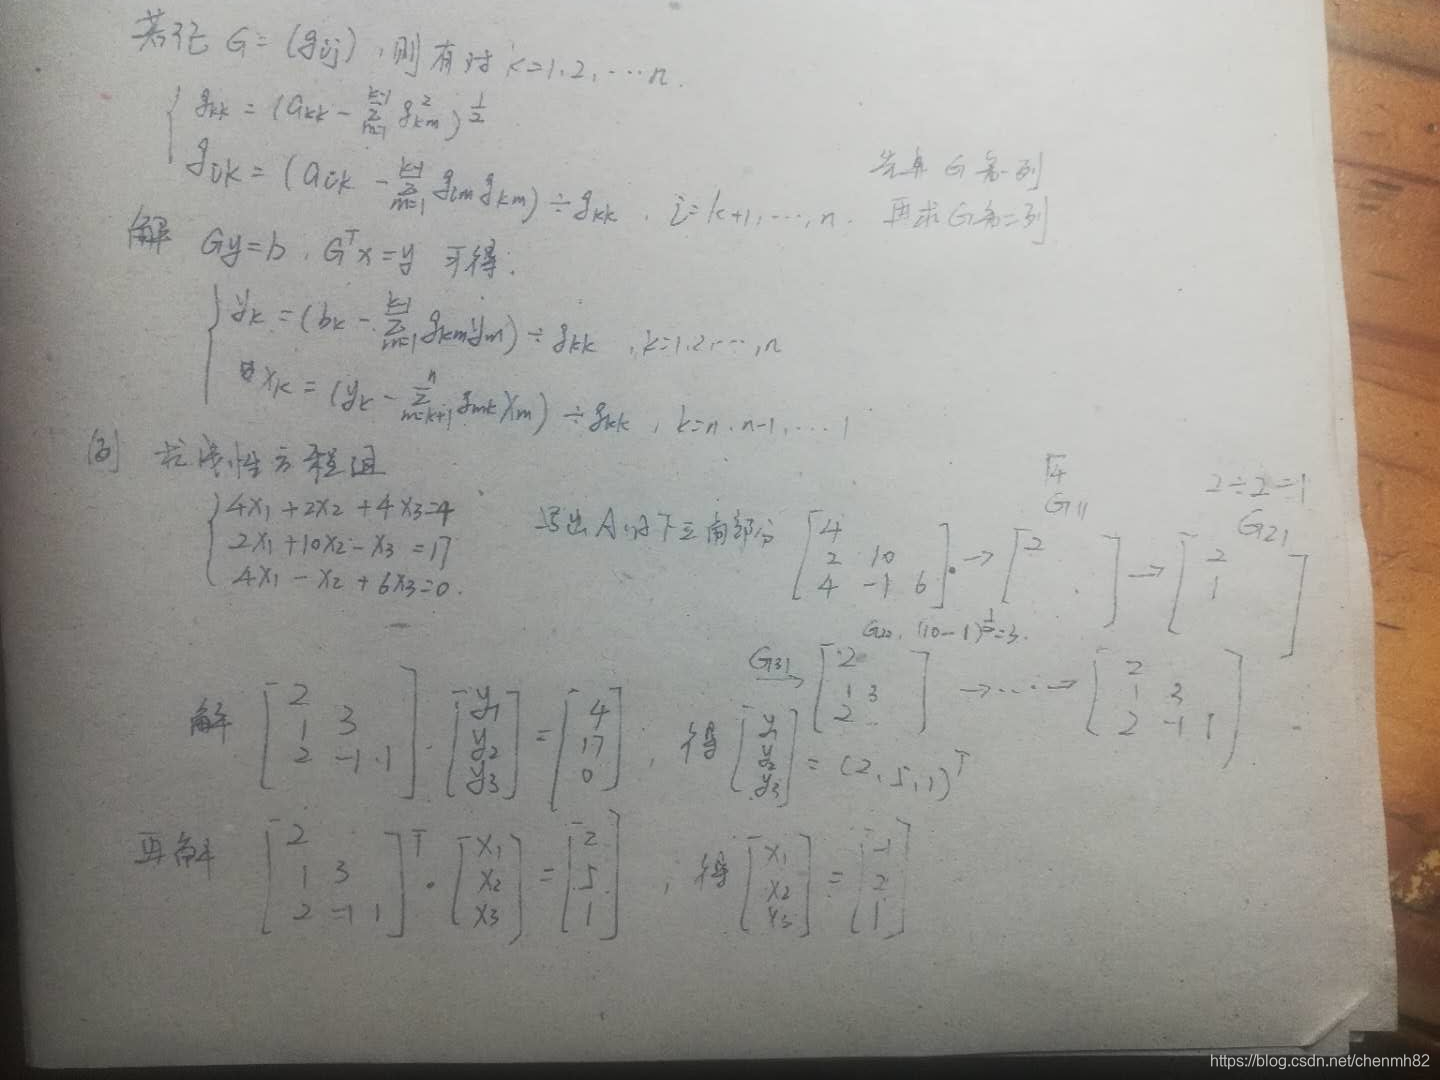 若记 G = (gij), 则有对 k=1,2,…n.
gkk = (akk - Σ_{m=1}^{k-1} g²km)^{1/2}
gik = (aik - Σ_{m=1}^{k-1} gim gkm) ÷ gkk, i=k+1,…,n.
先求 G 第一列
再求 G 第二列
解 Gy=b, G^T x=y 可得:
yk = (bk - Σ_{m=1}^{k-1} gkm ym) ÷ gkk, k=1,2,…,n
xk = (yk - Σ_{m=k+1}^{n} gmk xm) ÷ gkk, k=n,n-1,…1
例 求线性方程组
4x1+2x2+4x3=4
2x1+10x2-x3=17
4x1-x2+6x3=0.
写出A的下三角部分 [4; 2 10; 4 -1 6] → [2] → [2; 1]
√4
G11
2÷2=1
G21
G22, (10-1)^{1/2}=3.
G31 → [2; 1 3; 2] →…→ [2; 1 3; 2 -1 1]
解 [2; 1 3; 2 -1 1] · [y1; y2; y3] = [4; 17; 0], 得 [y1; y2; y3] = (2,5,1)^T
再解 [2; 1 3; 2 -1 1]^T · [x1; x2; x3] = [2; 5; 1], 得 [x1; x2; x3] = [-1; 2; 1]
https://blog.csdn.net/chenmh82